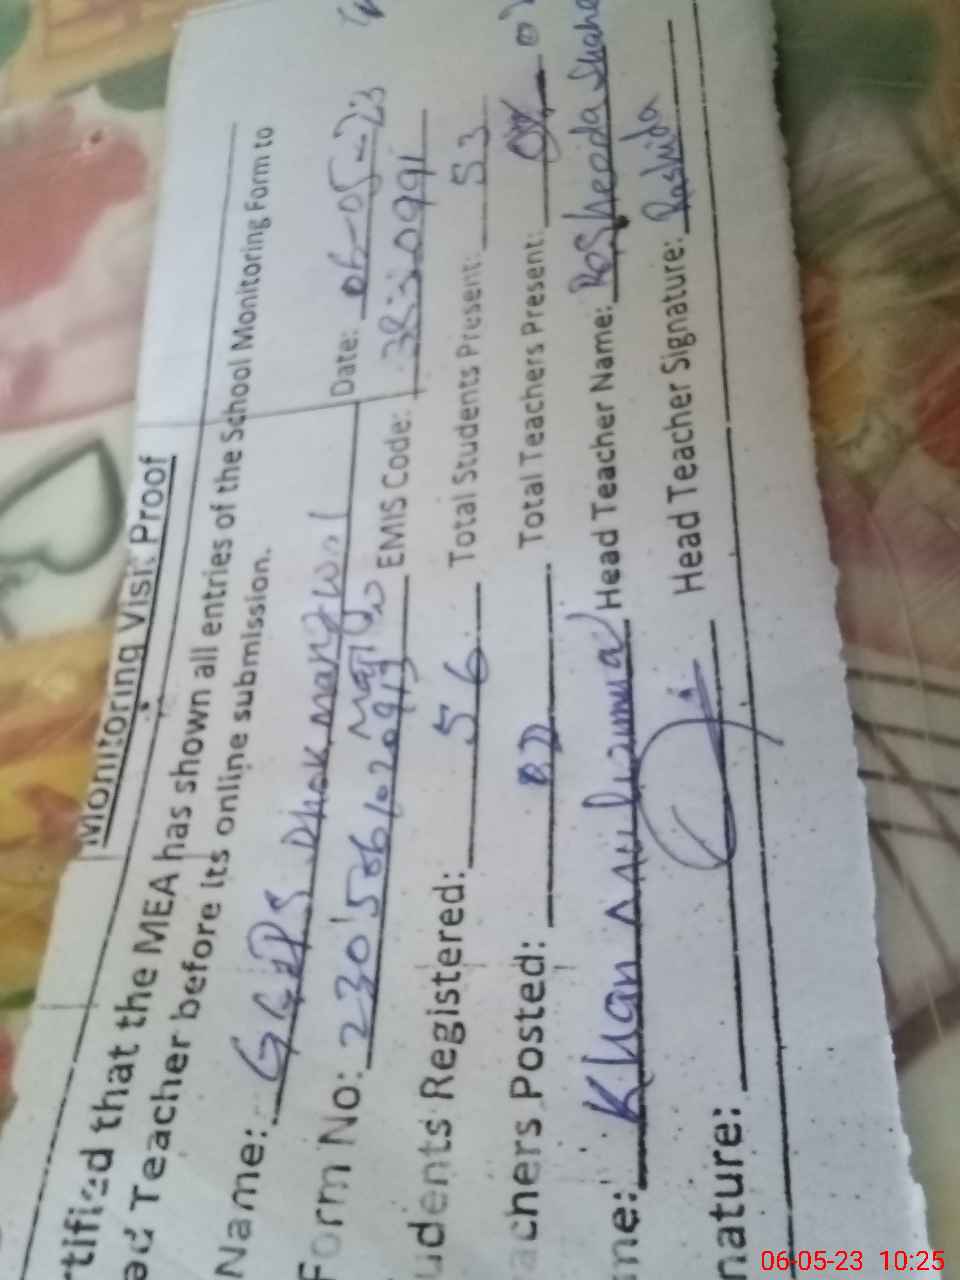 Monitoring Visit Proof
rtified that the MEA has shown all entries of the School Monitoring Form to
ad Teacher before its online submission.
Name: GGPS Dhok Mangwal Date: 06-05-23
Form No: EMIS Code:
udents Registered: 56 Total Students Present: 53
achers Posted: 02 Total Teachers Present:
me: Khan Head Teacher Name: Rasheeda Shahe
nature: Head Teacher Signature: Rashida
06-05-23 10:25